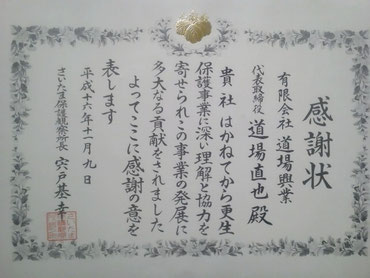 感謝状
有限会社 道場興業
代表取締役 道場直也 殿
貴社はかねてから更生
保護事業に深い理解と協力を
寄せられこの事業の発展に
多大なる貢献をされました
よってここに感謝の意を
表します
平成十六年十一月九日
さいたま保護観察所長 宍戸基幸